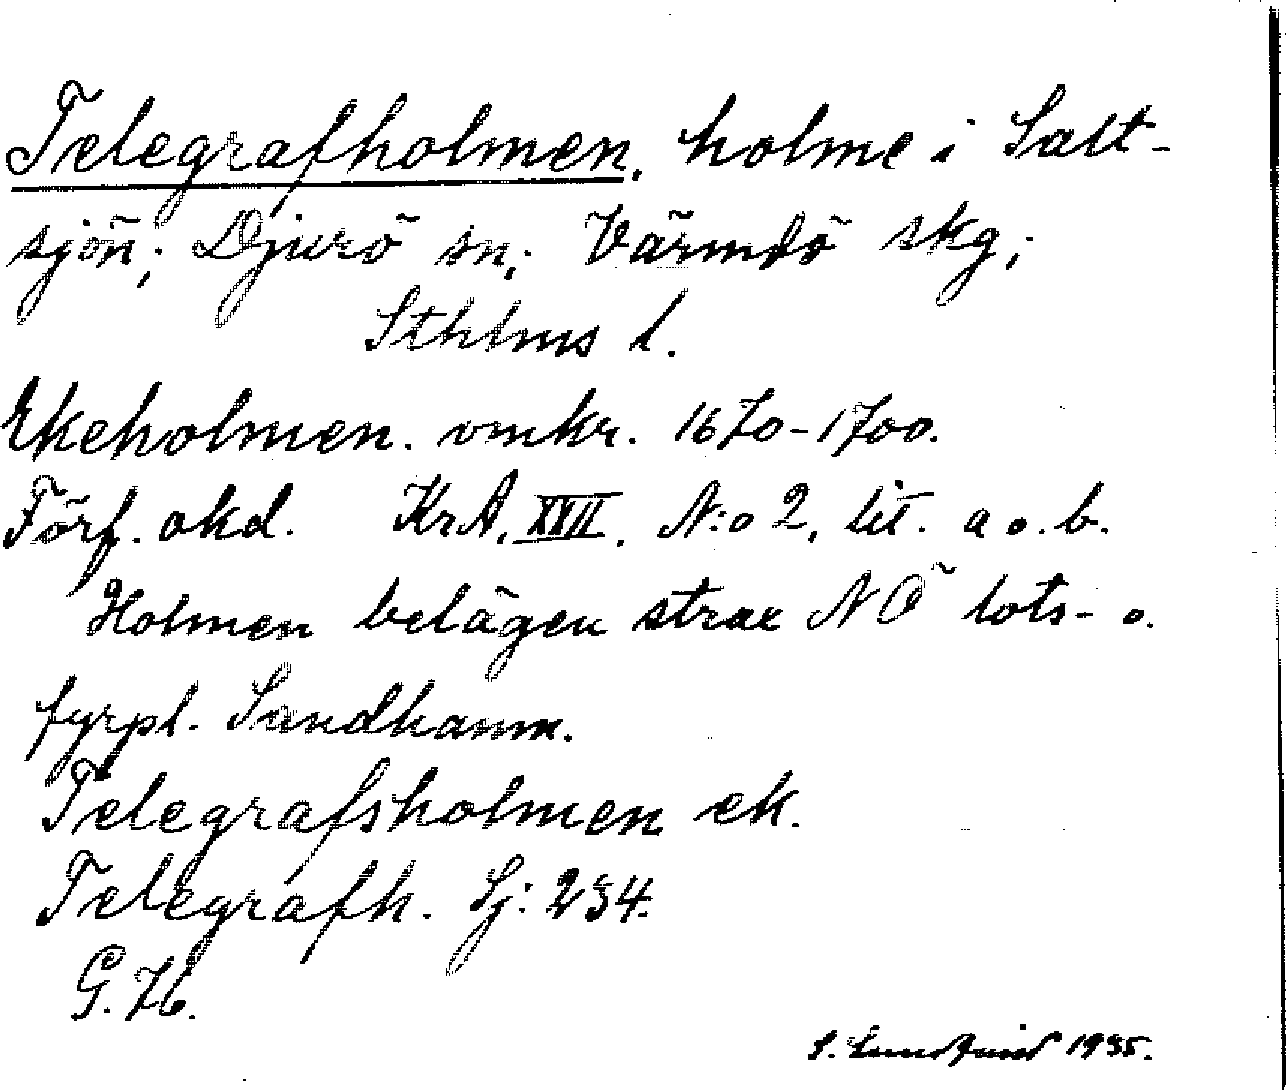 Telegrafholmen. holme i Salt-
sjön; Djurö sn; Värmdö skg;
Sthlms l.
Ekeholmen. omkr. 1670-1700.
Förf. okd. KrA. XXII. N:o 2, lit. a o. b.
Holmen belägen strax NÖ lots- o.
fyrpl. Sandhamn.
Telegrafsholmen ek.
Telegrafh. Sj: 234.
G. 76.
S. Lundqvist 1935.